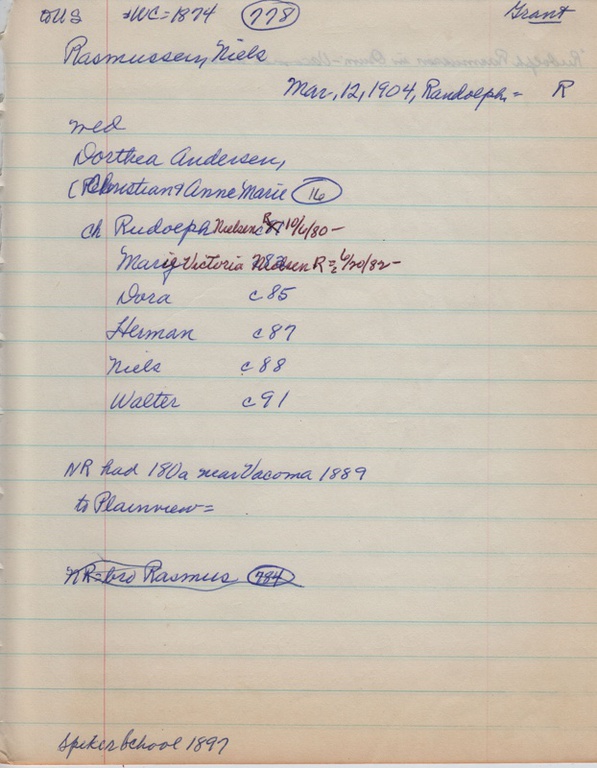 to US =WC=1874 778 Grant
Rasmussen, Niels
Mar, 12, 1904, Randolph = R
med
Dorthea Andersen,
(Christian & Anne Marie 16
ch Rudolph Nielsen R 10/6/80 -
Marie Victoria Nielsen R = 6/20/82 -
Dora c85
Herman c87
Niels c88
Walter c91
NR had 180a near Vacoma 1889
to Plainview =
NR=bro Rasmus 784
Spiker School 1897